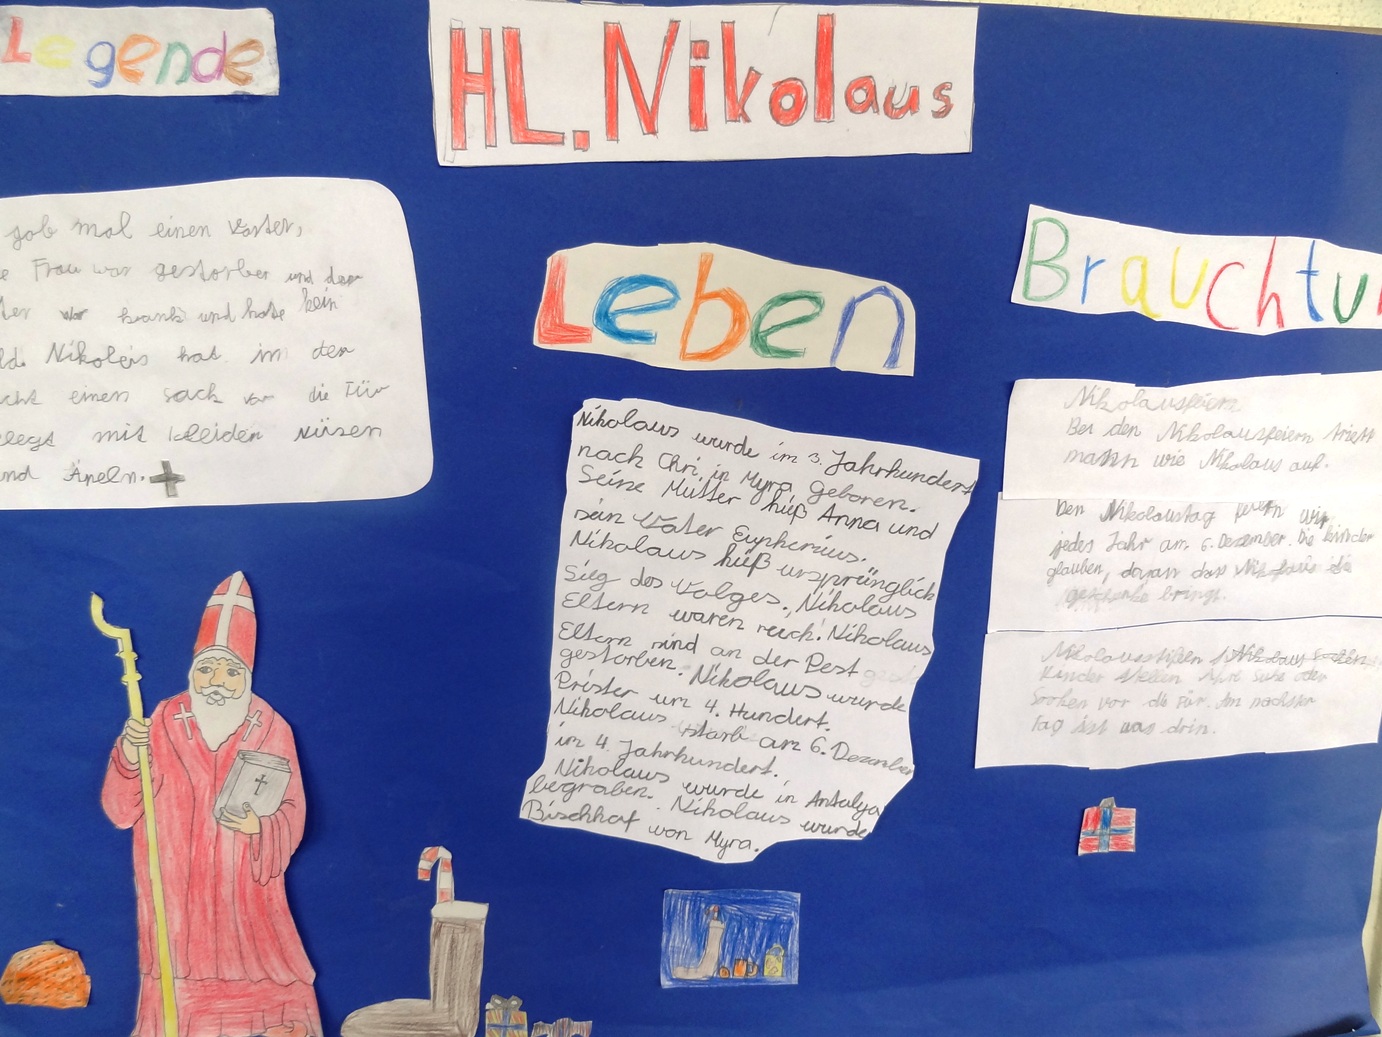 Legende
HL. Nikolaus
gab mal einen Vater,
e Frau war gestorber und der
ter war krank und hate kein
ld. Nikoleis hat im der
cht einen sack vor die Tür
elegt mit kleiden Nüsen
nd Äpeln.
Leben
Nikolaus wurde im 3. Jahrhundert
nach Chri. in Myra geboren.
Seine Mutter hüß Anna und
sein Vater Eupherius.
Nikolaus hüß ursprünglich
Sieg des Volges. Nikolaus
Eltern waren reich. Nikolaus
Eltern sind an der Pest
gestorben. Nikolaus wurde
Prister um 4. Hundert.
Nikolaus starb am 6. Dezember
im 4. Jahrhundert.
Nikolaus wurde in Antalya
begraben. Nikolaus wurde
Bischhof von Myra.
Brauchtu
Nikolausfeiern
Bei den Nikolausfeiern triett
mann wie Nikolaus auf.
Den Nikolaustag feiern wir
jedes Jahr am 6. Dezember. Die kinder
glauben, daran das Nikolaus die
geschenke bringt.
Nikolausstifel
Kinder stelen ihre oder
Socken vor die Tür. Am nächsten
Tag ist was drin.